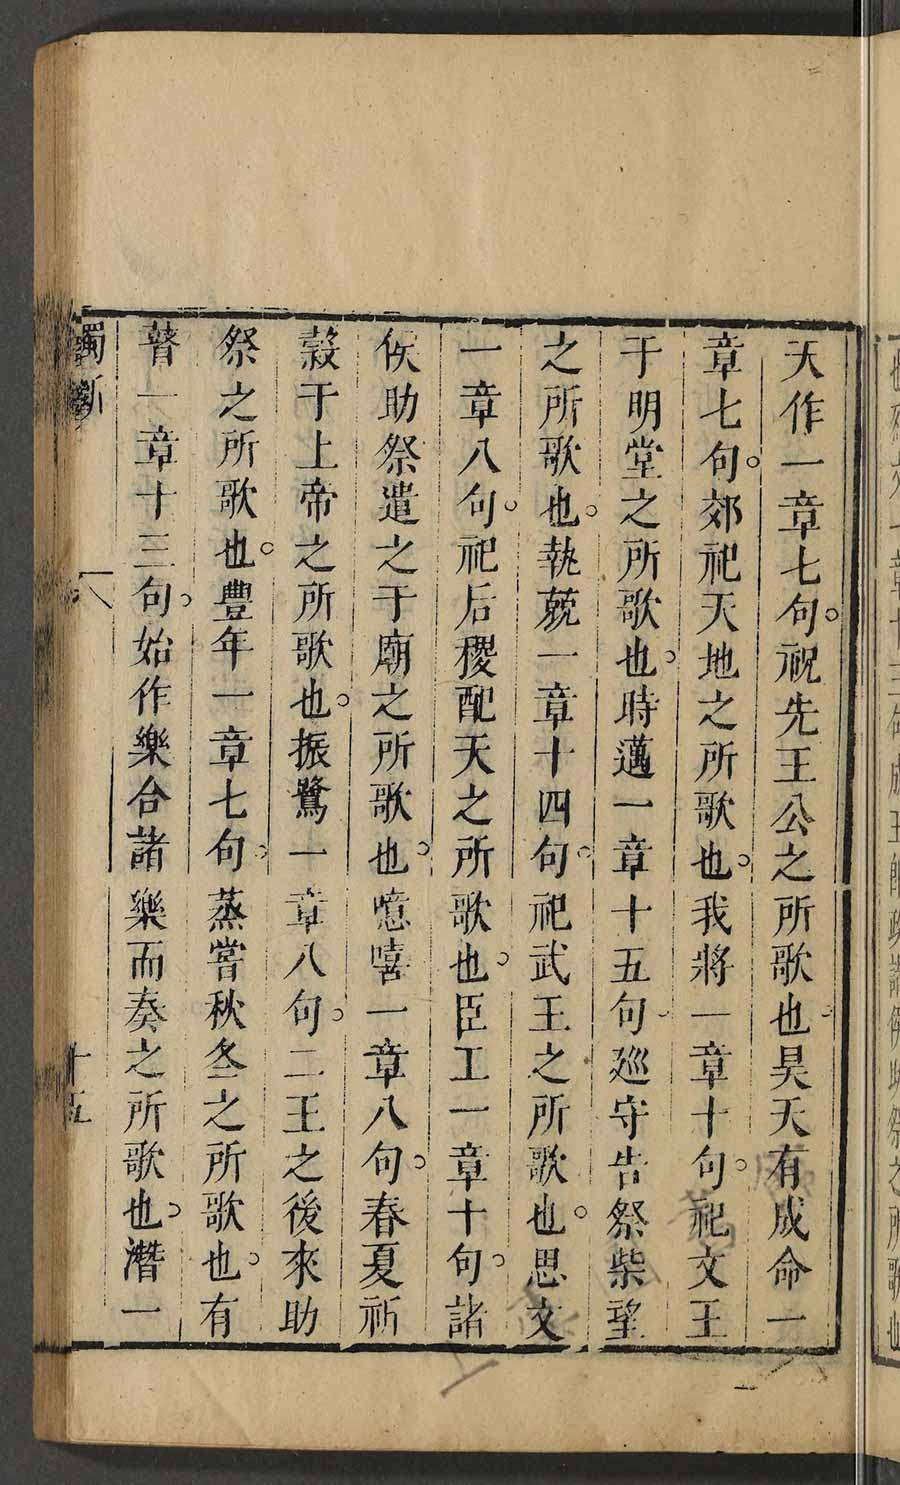 天作一章七句祝先王公之所歌也昊天有成命一
章七句郊祀天地之所歌也我將一章十句祀文王
于明堂之所歌也時邁一章十五句廵守告祭柴望
之所歌也執兢一章十四句祀武王之所歌也思文
一章八句祀后稷配天之所歌也臣工一章十句諸
侯助祭遣之于廟之所歌也噫嘻一章八句春夏祈
穀于上帝之所歌也振鷺一章八句二王之後來助
祭之所歌也豐年一章七句蒸嘗秋冬之所歌也有
瞽一章十三句始作樂合諸樂而奏之所歌也潛一
獨斷
十五